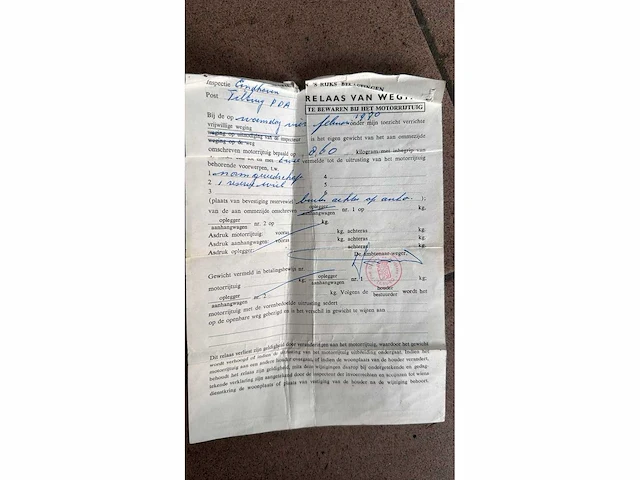 Inspectie Eindhoven 'S RIJKS BELASTINGEN
Post Tilburg PDA RELAAS VAN WEGI
TE BEWAREN BIJ HET MOTORRIJTUIG
Bij de op woensdag vier februari 1970 onder mijn toezicht verrichte
vrijwillige weging
weging op uitnodiging van de inspecteur is het eigen gewicht van het aan ommezijde
weging op de weg
omschreven motorrijtuig bepaald op 860 kilogram, met inbegrip van
vermelde tot de uitrusting van het motorrijtuig
behorende voorwerpen, t.w.
1 4
2 1 reservewiel 5
3 6
(plaats van bevestiging reservewiel: buiten achter op auto.);
van de aan ommezijde omschreven oplegger
aanhangwagen nr. 1 op kg.
oplegger
aanhangwagen nr. 2 op kg.
Asdruk motorrijtuig: vooras kg, achteras kg.
Asdruk aanhangwagen: vooras kg, achteras kg.
Asdruk oplegger: achteras kg.
De ambtenaar-weger,
Gewicht vermeld in betalingsbewijs nr.
motorrijtuig kg; oplegger
aanhangwagen nr. 1 kg.
oplegger
aanhangwagen nr. 2 kg. Volgens de houder
bestuurder wordt het
motorrijtuig met de vorenbedoelde uitrusting sedert
op de openbare weg gebezigd en is het verschil in gewicht te wijten aan
Dit relaas verliest zijn geldigheid door veranderingen aan het motorrijtuig, waardoor het gewicht
wordt verhoogd of indien de uitrusting van het motorrijtuig uitbreiding ondergaat. Indien het
motorrijtuig aan een andere houder overgaat, of indien de woonplaats van de houder verandert,
behoudt het relaas zijn geldigheid, mits deze wijzigingen daarop bij ondergetekende en gedag-
tekende verklaring zijn aangetekend door de inspecteur der invoerrechten en accijnzen tot wiens
dienstkring de woonplaats of plaats van vestiging van de houder na de wijziging behoort.